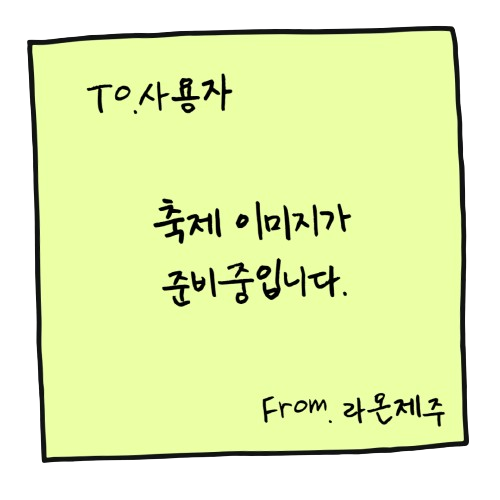 TO.사용자
축제 이미지가
준비중입니다.
From. 라온제주